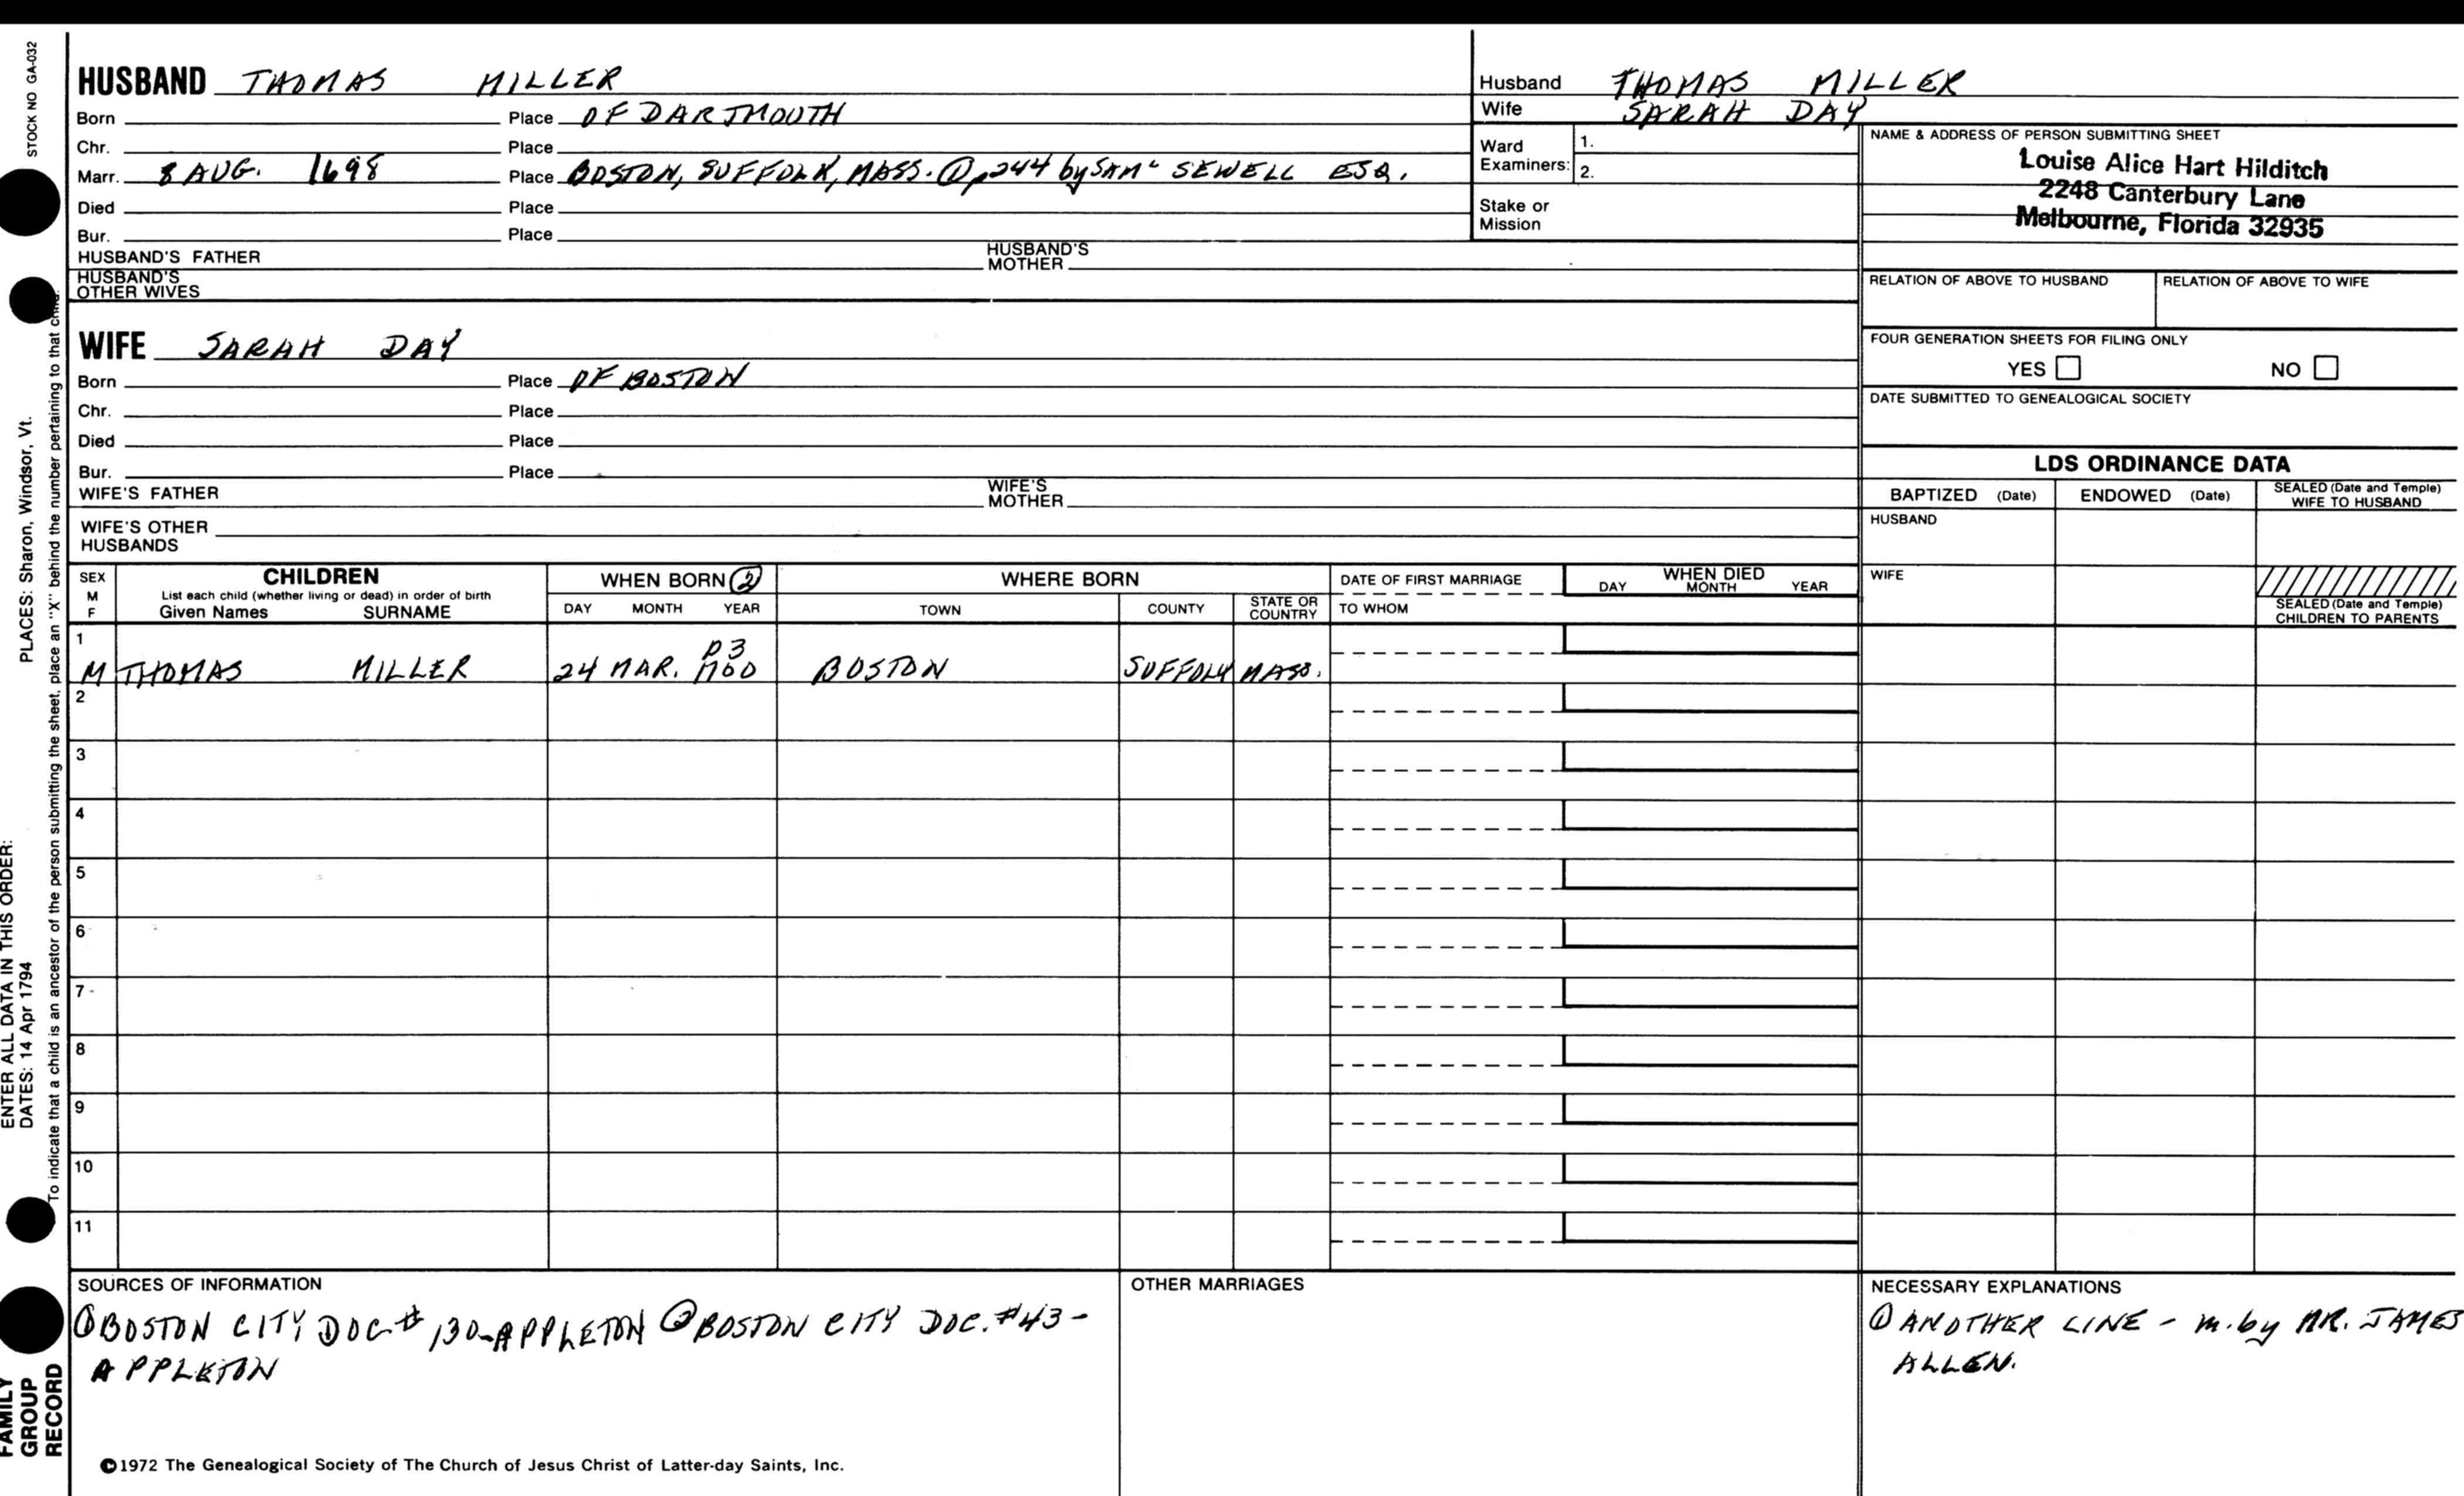 STOCK NO GA-032
HUSBAND THOMAS MILLER
Born Place OF DARTMOUTH
Chr. Place
Marr. 8 AUG. 1698 Place BOSTON, SUFFOLK, MASS. ① p244 by SAML SEWELL ESQ.
Died Place
Bur. Place
HUSBAND'S FATHER HUSBAND'S MOTHER
HUSBAND'S OTHER WIVES
WIFE SARAH DAY
Born Place OF BOSTON
Chr. Place
Died Place
Bur. Place
WIFE'S FATHER WIFE'S MOTHER
WIFE'S OTHER HUSBANDS
Husband THOMAS MILLER
Wife SARAH DAY
Ward Examiners: 1.
2.
Stake or Mission
NAME & ADDRESS OF PERSON SUBMITTING SHEET
Louise Alice Hart Hilditch
2248 Canterbury Lane
Melbourne, Florida 32935
RELATION OF ABOVE TO HUSBAND RELATION OF ABOVE TO WIFE
FOUR GENERATION SHEETS FOR FILING ONLY
YES NO
DATE SUBMITTED TO GENEALOGICAL SOCIETY
LDS ORDINANCE DATA
BAPTIZED (Date) ENDOWED (Date) SEALED (Date and Temple) WIFE TO HUSBAND
HUSBAND
WIFE
SEALED (Date and Temple) CHILDREN TO PARENTS
SEX M F CHILDREN WHEN BORN ② WHERE BORN DATE OF FIRST MARRIAGE WHEN DIED
List each child (whether living or dead) in order of birth
Given Names SURNAME DAY MONTH YEAR TOWN COUNTY STATE OR COUNTRY TO WHOM DAY MONTH YEAR
1
p3
M THOMAS MILLER 24 MAR. 1700 BOSTON SUFFOLK MASS.
2
3
4
5
6
7
8
9
10
11
SOURCES OF INFORMATION
① BOSTON CITY DOC # 130-APPLETON ② BOSTON CITY DOC. #43-
APPLETON
OTHER MARRIAGES
NECESSARY EXPLANATIONS
① ANOTHER LINE - m. by MR. JAMES
ALLEN.
©1972 The Genealogical Society of The Church of Jesus Christ of Latter-day Saints, Inc.
FAMILY
GROUP
RECORD
ENTER ALL DATA IN THIS ORDER:
DATES: 14 Apr 1794 PLACES: Sharon, Windsor, Vt.
To indicate that a child is an ancestor of the person submitting the sheet, place an "X" behind the number pertaining to that child.